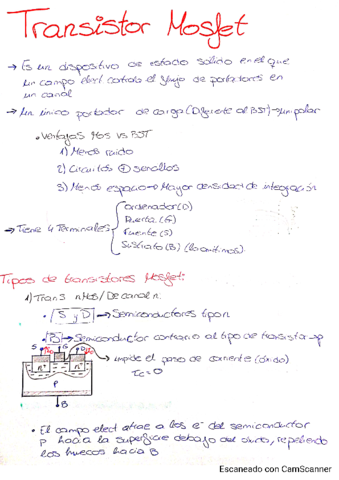 Transistor Mosfet
→ Es un dispositivo de estado solido en el que
un campo elect controla el flujo de portadores en
un canal
→ Un único portador de carga (Diferente al BJT) → unipolar
• Ventajas Mos vs BJT
1) Menos ruido
2) Circuitos ⊕ sencillos
3) Menos espacio → Mayor densidad de integración
→ Tiene 4 Terminales
Drenador (D)
Puerta (G)
Fuente (S)
Sustrato (B) (lo omitimos)
Tipos de transistores Mosfet:
1) Trans nMos / De canal n.
• S y D → Semiconductores tipo n
• B → Semiconductor contrario al tipo de transista → p
S G D
→ impide el paso de corriente (óxido)
n+ n+
IG = 0
P
B
• El campo elect atrae a los e⁻ del semiconductor
p hacia la superficie debajo del óxido, repeliendo
los huecos hacia B
Escaneado con CamScanner